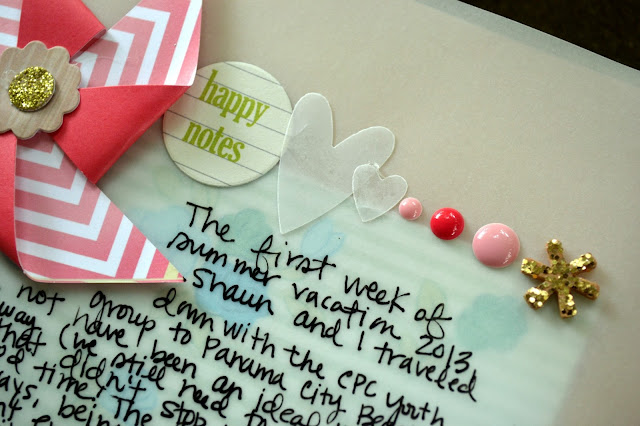 happy
notes
The first week of
summer vacation 2013,
Shaun and I traveled
down with the CPC youth
group to Panama City
not have been an ideal
way
that (we still need
didn't
time. The stop
being